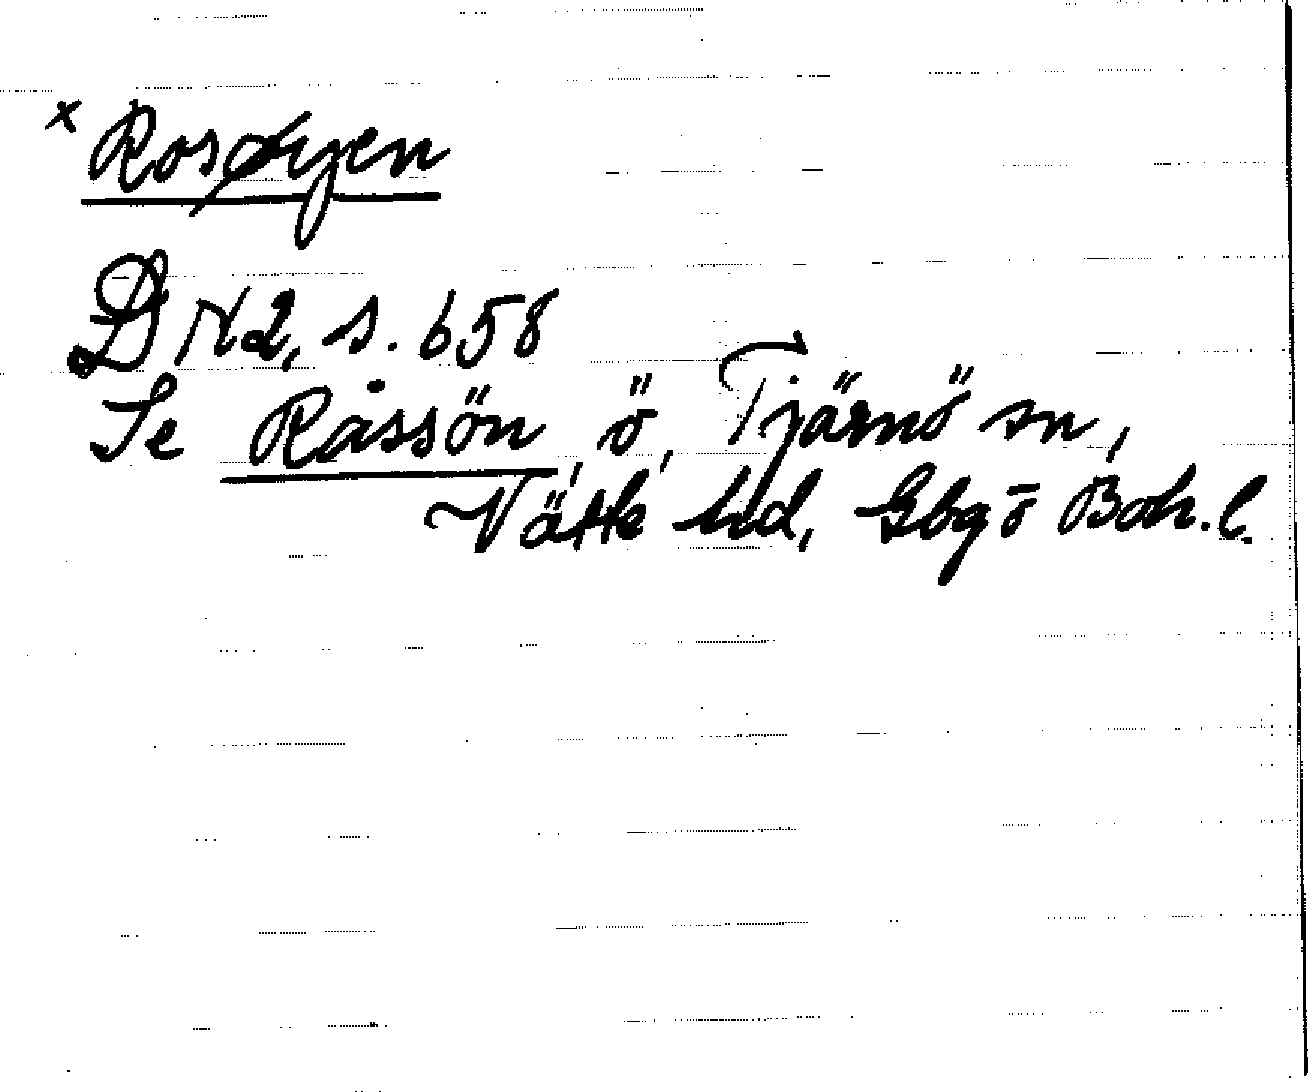 x Rosøyen
DN2, s. 658
Se Råssön, ö, Tjärnö sn,
Vätte hd, Gbg o Boh. l.